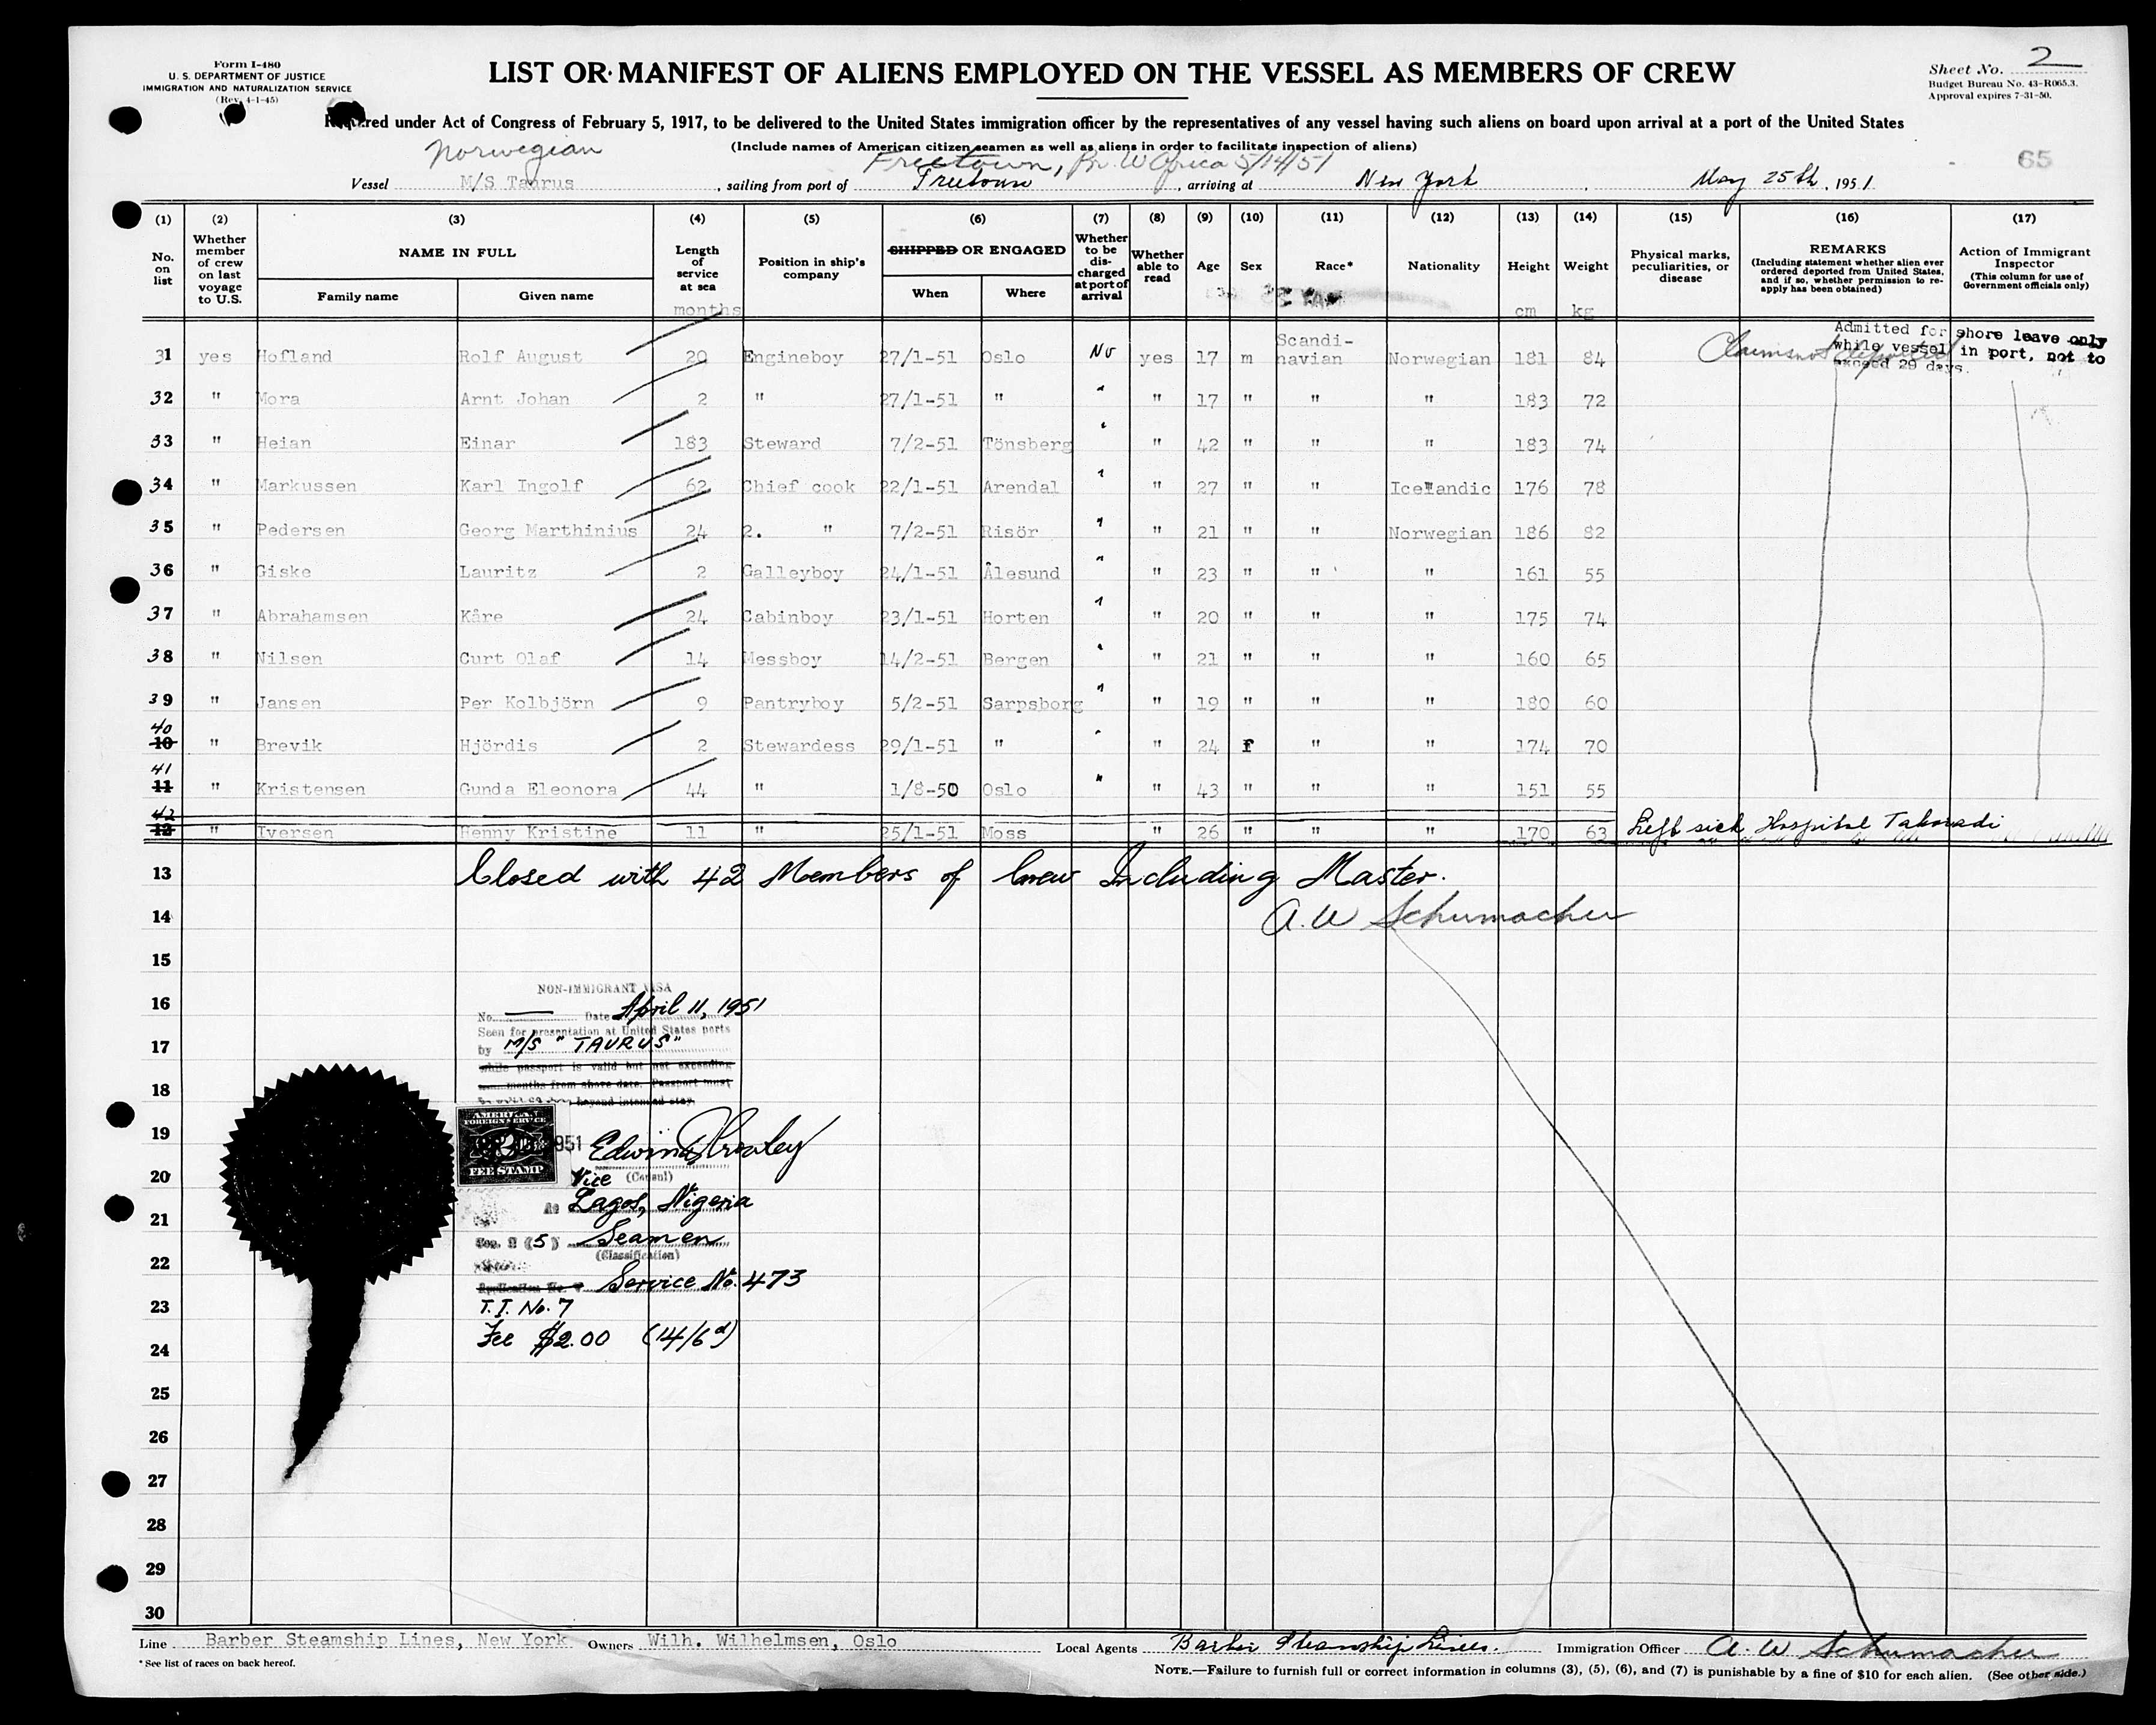 Form I-480
U. S. DEPARTMENT OF JUSTICE
IMMIGRATION AND NATURALIZATION SERVICE
(Rev. 4-1-45)
LIST OR MANIFEST OF ALIENS EMPLOYED ON THE VESSEL AS MEMBERS OF CREW
Sheet No. 2
Budget Bureau No. 43-R065.3.
Approval expires 7-31-50.
Required under Act of Congress of February 5, 1917, to be delivered to the United States immigration officer by the representatives of any vessel having such aliens on board upon arrival at a port of the United States
(Include names of American citizen seamen as well as aliens in order to facilitate inspection of aliens)
Norwegian Freetown, Br. W Africa 5/14/51
65
Vessel M/S Taurus, sailing from port of Freetown, arriving at New York, May 25th, 1951
(1) (2) (3) (4) (5) (6) (7) (8) (9) (10) (11) (12) (13) (14) (15) (16) (17)
No. on list
Whether member of crew on last voyage to U.S.
NAME IN FULL
Family name Given name
Length of service at sea
months
Position in ship's company
SHIPPED OR ENGAGED
When Where
Whether to be discharged at port of arrival
Whether able to read
Age
Sex
Race*
Nationality
Height
cm
Weight
kg
Physical marks, peculiarities, or disease
REMARKS
(Including statement whether alien ever ordered deported from United States, and if so, whether permission to reapply has been obtained)
Action of Immigrant Inspector
(This column for use of Government officials only)
31 yes Hofland Rolf August 20 Engineboy 27/1-51 Oslo No yes 17 m Scandinavian Norwegian 181 84
Claims not deported
Admitted for shore leave only
while vessel in port, not to
exceed 29 days.
32 " Mora Arnt Johan 2 " 27/1-51 " " " 17 " " " 183 72
33 " Heian Einar 183 Steward 7/2-51 Tönsberg " " 42 " " " 183 74
34 " Markussen Karl Ingolf 62 Chief cook 22/1-51 Arendal " " 27 " " Icelandic 176 78
35 " Pedersen Georg Marthinius 24 2. " 7/2-51 Risör " " 21 " " Norwegian 186 82
36 " Giske Lauritz 2 Galleyboy 24/1-51 Ålesund " " 23 " " " 161 55
37 " Abrahamsen Kåre 24 Cabinboy 23/1-51 Horten " " 20 " " " 175 74
38 " Nilsen Curt Olaf 14 Messboy 14/2-51 Bergen " " 21 " " " 160 65
39 " Jansen Per Kolbjörn 9 Pantryboy 5/2-51 Sarpsborg " " 19 " " " 180 60
40
10 " Brevik Hjördis 2 Stewardess 29/1-51 " " " 24 f " " 174 70
41
11 " Kristensen Gunda Eleonora 44 " 1/8-50 Oslo " " 43 " " " 151 55
42
12 " Iversen Henny Kristine 11 " 25/1-51 Moss " 26 " " " 170 63 Left sick Hospital Takoradi
13 Closed with 42 Members of Crew Including Master.
14 A. W Schumacher
15
NON-IMMIGRANT VISA
16 No. Date April 11, 1951
Seen for presentation at United States ports
17 by M/S "TAURUS"
while passport is valid but not exceeding
months from above date. Passport must
18
beyond intended stay.
AMERICAN
FOREIGN SERVICE
1951
FEE STAMP
19 Edwin
20 Vice (Consul)
At Lagos, Nigeria
21
Sec. 3 (5) Seamen
(Classification)
22
Application No. Service No. 473
23 T.I. No. 7
Fee $2.00 (14/6d)
24
25
26
27
28
29
30
Line Barber Steamship Lines, New York Owners Wilh. Wilhelmsen, Oslo Local Agents Barber Steamship Lines. Immigration Officer A. W Schumacher
*See list of races on back hereof.
NOTE.—Failure to furnish full or correct information in columns (3), (5), (6), and (7) is punishable by a fine of $10 for each alien. (See other side.)